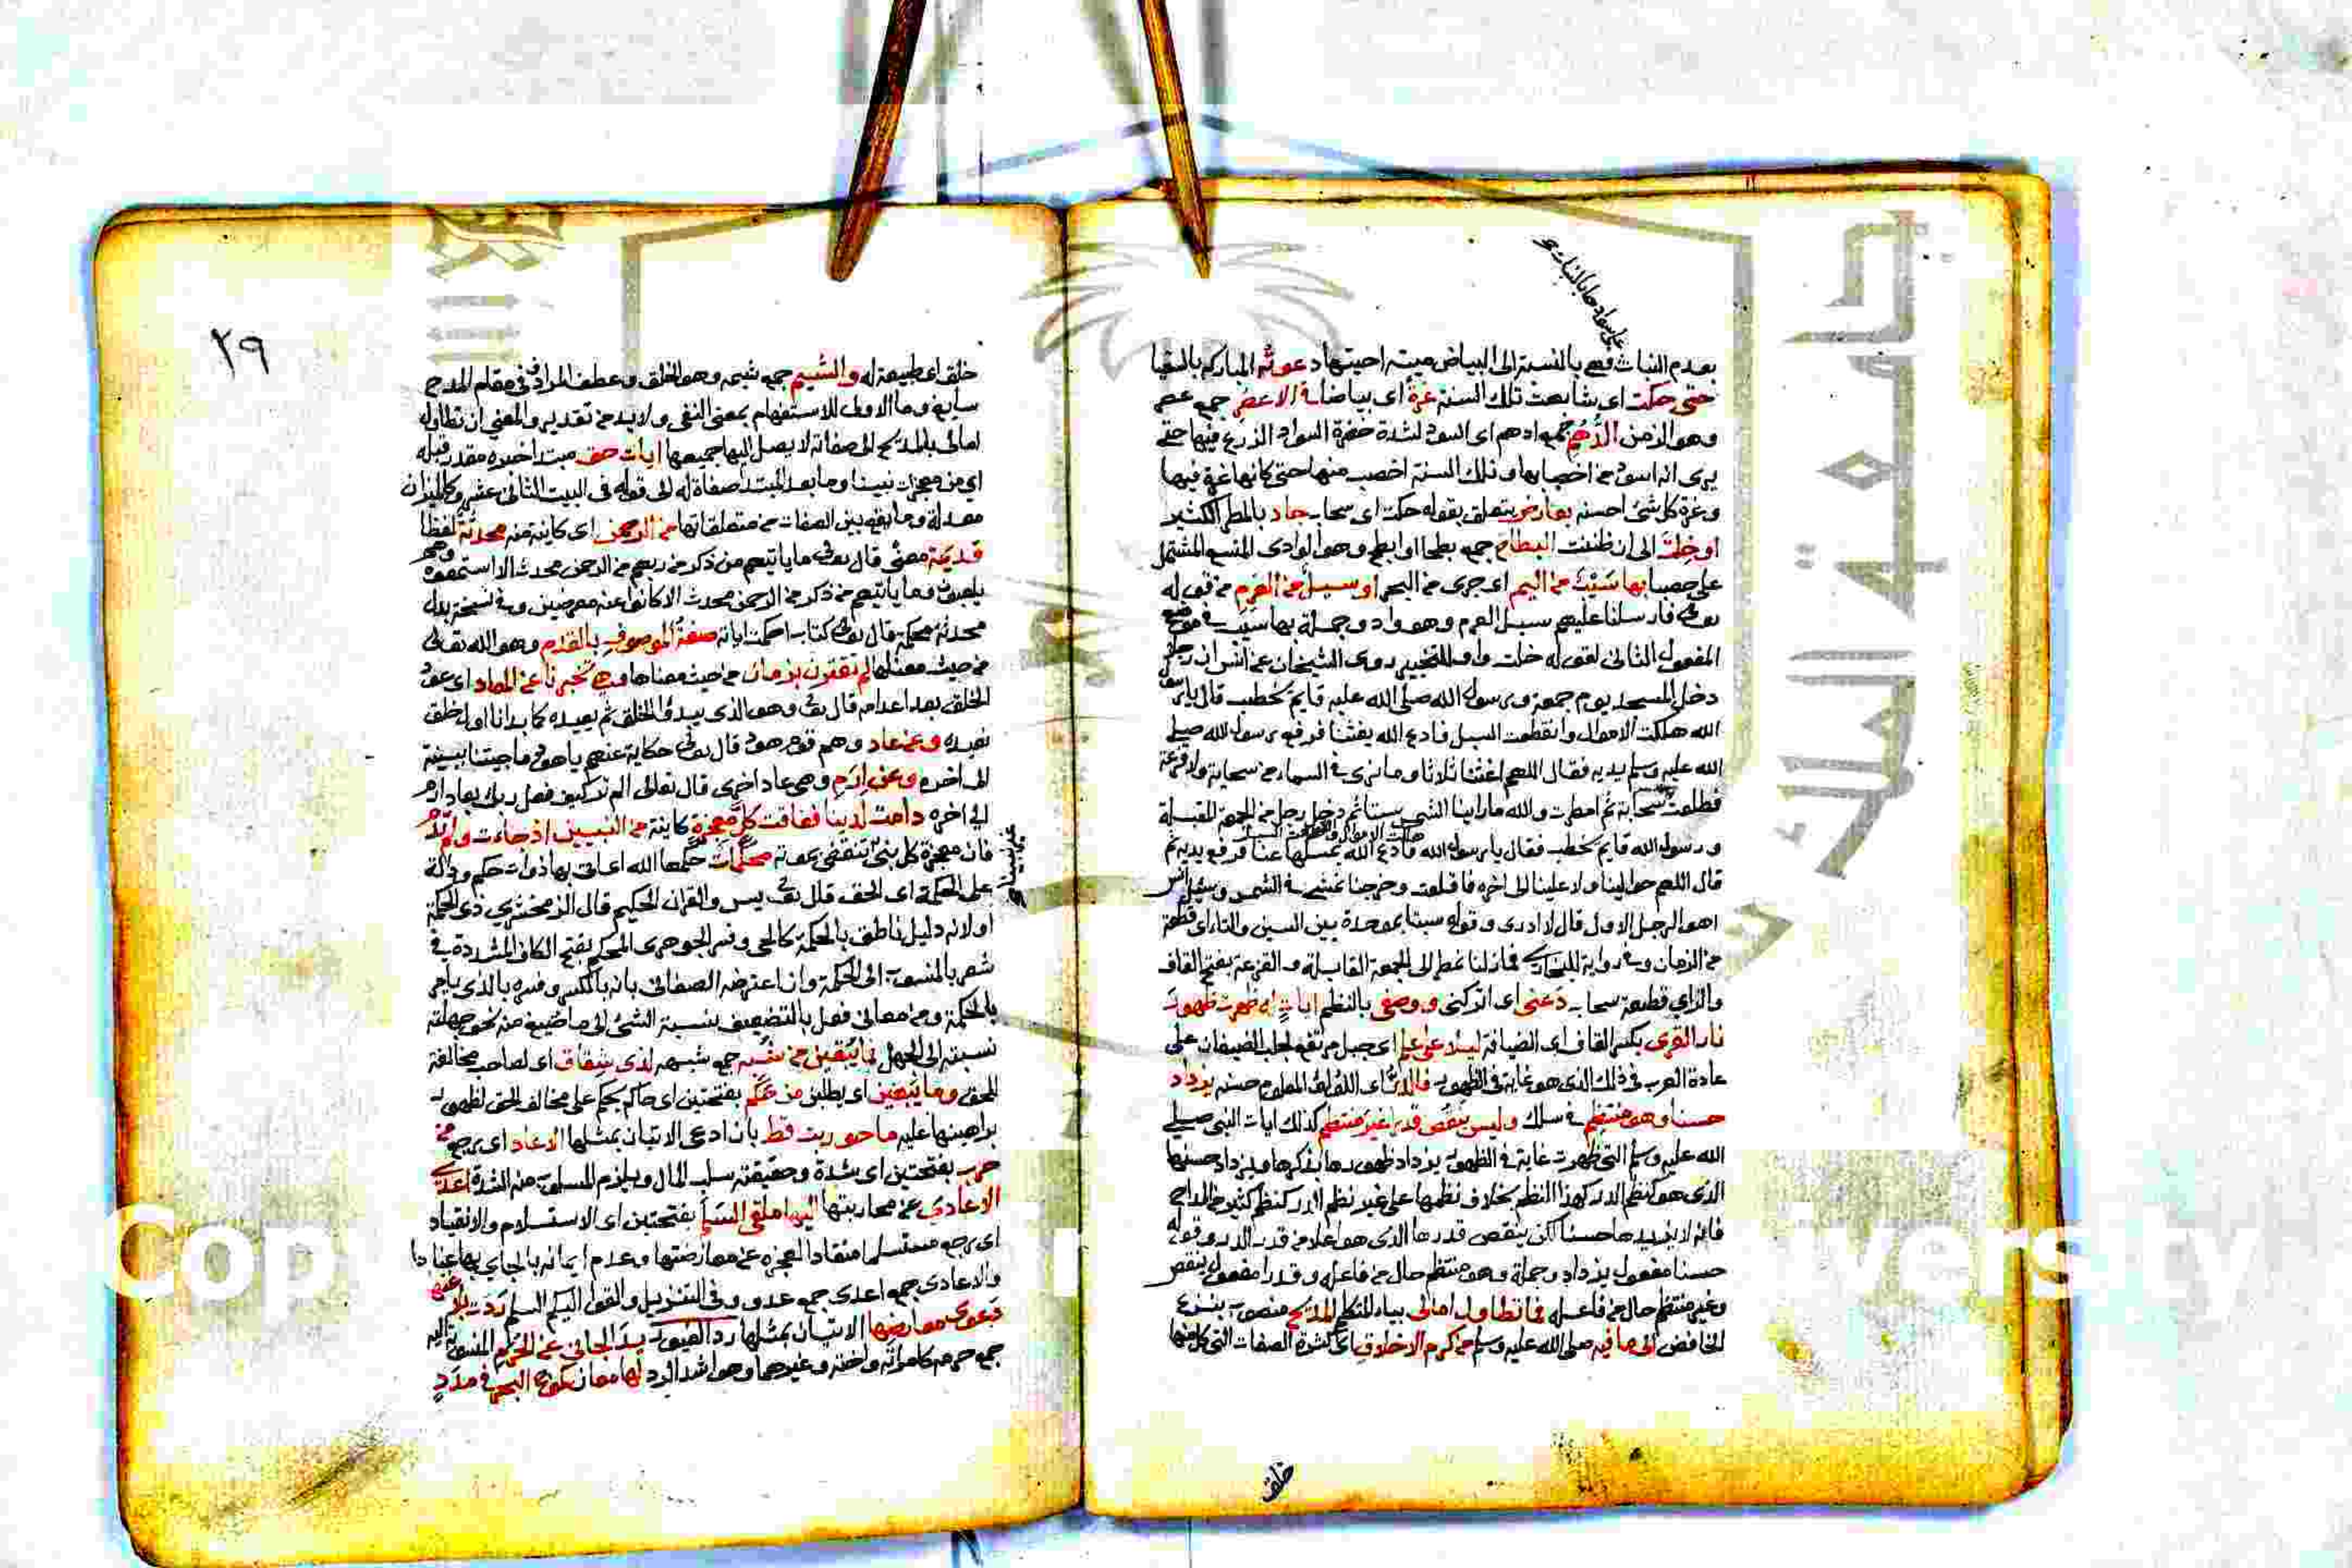 على سوادها بالنبات و
بعدم النبات فهي بالنسبة الى البياض ميتة احيتها دعوته المباركة بالسقيا
حتى حكت اى شابهت تلك السنة غرة اى بياضا في الاعصر جمع عصر
وهو الزمن الدهم جمع ادهم اى اسود لشدة خضرة السواد الزرع فيها حتى
يرى انه اسود من اخصابها وتلك السنة اخصب منها حتى كانها غرة فيها
وغرة كل شئ احسنه بعارض يتعلق بقوله حكت اى سحاب جاد بالمطر الكثير
او خلت الى ان ظننت البطاح جمع بطحا او ابطح وهو الوادى المتسع المشتمل
على حصبا بها سيب من اليم اى جرى من البحر او سيل من العرم من قوله
تعالى فارسلنا عليهم سيل العرم وهو واد وجملة بها سيب في موضع
المفعول الثانى لقوله خلت واو للتخيير روى الشيخان عن انس ان رجلا
دخل المسجد يوم جمعة ورسول الله صلى الله عليه قايم يخطب قال يا رسول
الله هلكت الاموال وانقطعت السبل فادع الله يغثنا فرفع رسول الله صلى
الله عليه وسلم يديه فقال اللهم اغثنا ثلاثا وما نرى في السماء من سحابة ولا قزعة
فطلعت سحابة ثم امطرت والله ما راينا الشمس سبتا ثم دخل رجل من الجمعة المقبلة
ورسول الله قايم يخطب فقال يا رسول الله هلكت الاموال وانقطعت السبل فادع الله يمسكها عنا فرفع يديه ثم
قال اللهم حوالينا ولا علينا الى اخره فاقلعت وخرجنا نمشى في الشمس وسئل انس
اهو الرجل الاول قال لا ادرى وقوله سبتا بموحدة بين السين والتاء اى قطعة
من الزمان وفي رواية للبخارى فما زلنا نمطر الى الجمعة القابلة والقزعة بفتح القاف
والزاي قطعة سحاب دعنى اى اتركنى ووصفى بالنظم ايات له ظهرت ظهور
نار القرى بكسر القاف اى الضيافة ليلا على علم اى جبل مرتفع لجلب الضيفان على
عادة العرب في ذلك الذى هو غاية في الظهور فالدر اى اللؤلؤ المعلوم حسنه يزداد
حسنا وهو منتظم في سلك وليس ينقص قدرا غير منتظم كذلك ايات النبى صلى
الله عليه وسلم التى ظهرت غاية في الظهور يزداد ظهورها بذكرها ويزداد حسنها
الذى هو كنظم الدر كهذا النظم بخلاف نظمها على غير نظم الدر كنظم كثير من المداح
فانه لا يزيدها حسنا لكن ينقص قدرها الذى هو اعلا من قدر الدر وقوله
حسنا مفعول يزداد وجملة وهو منتظم حال من فاعله وقدرا مفعول ينقص
وغير منتظم حال من فاعله فما تطاول امالى بياء المتكلم المديح منصوب بنزع
الخافض الى ما فيه صلى الله عليه وسلم من كرم الاخلاق اى كثرة الصفات التى كل منها
خلق
٢٩
خلق اى طبيعة له والشيم جمع شيمة وهو الخلق وعطف المرادف في مقام المدح
سايغ وما الاولى للاستفهام بمعنى النفى ولا بد من تقدير والمعنى ان تطاول
امالى بالمديح الى صفاته لا يصل اليها جميعها ايات حق مبتدا خبره مقدر قبله
اي من معجزات نبينا وما بعد المبتدا صفاة له الى قوله في البيت الثانى عشر وكالميزان
معدلة وما يقع بين الصفات من متعلقاتها من الرحمن اى كاينة منه محدثة لفظا
قديمة معنى قال تعالى ما ياتيهم من ذكر من ربهم من الرحمن محدث الا استمعوه وهم
يلعبون وما ياتيهم من ذكر من الرحمن محدث الا كانوا عنه معرضين وفي نسخة بدل
محدثة محكمة قال تعالى كتاب احكمت اياته صفة الموصوف بالقدم وهو الله تعالى
من حيث معناها لم تقترن بزمان من حيث معناها وهي تخبرنا عن المعاد اى عود
الخلق بعد اعدامه قال تعالى وهو الذى يبدؤا الخلق ثم يعيده كما بدانا اول خلق
نعيده وعن عاد وهم قوم هود قال تعالى حكاية عنهم ياهود ما جيتنا ببينة
الى اخره وعن ارم وهي عاد اخرى قال تعالى الم تر كيف فعل ربك بعاد ارم
الى اخره دامت لدينا ففاقت كل معجزة كاينة من النبيين اذ جاءت ولم تدم
فان معجزة كل نبى تنقضى بموته محكمات حكمها الله اى اتى بها ذوات حكم ودالة
على الحكمة اى الحق قال تعالى يس والقران الحكيم قال الزمخشري ذى الحكمة
او لانه دليل ناطق بالحكمة كالحى وفسر الجوهرى المحكم بفتح الكاف المشددة في
شعر بالمنسوب الى الحكمة وان اعترضه الصغانى بانه بالكسر وفسره بالذى ياجر
بالحكمة ومن معانى فعل بالتضعيف بنسبة الشئ الى ما ضيغ منه نحو جهلته
نسبته الى الجهل فما يبقين من شبه جمع شبهه لذى شقاق اى لصاحب مخالفة
للحق وما يبغين اى يطلبن من حكم بفتحتين اى حاكم يحكم على مخالف الحق لظهور
براهينها عليه ما حوربت قط بان ادعى الاتيان بمثلها الا عاد اى رجع من
حرب بفتحتين اى شدة وحقيقته سلب المال ويلزم المسلوب منه الشدة اعدى
الاعادى عن محاربتها اليها ملقى السلم بفتحتين اى الاستسلام والانقياد
اى رجع مستسلما منقادا لعجزه عن معارضتها وعدم ايمانه بالجاى بها عنادا
والاعادى جمع اعدى جمع عدو وفي التنزيل والقوا اليكم السلم ردت بلاغتها
دعوى معارضها الاتيان بمثلها رد الغيور يد الجانى عن الحرم المنسوبة اليه
جمع حرمه كامراته واخته وغيرهما وهو اشد الرد لها معان كموج البحر في مدد